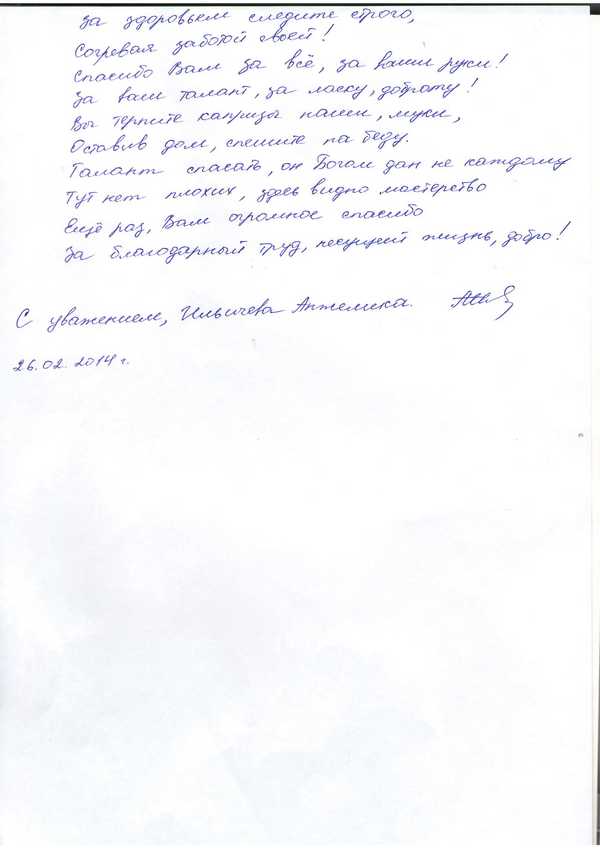 За здоровьем следите строго,
Согревая заботой своей!
Спасибо Вам за всё, за ваши руки!
За ваш талант, за ласку, доброту!
Вы терпите капризы наши, муки,
Оставив дом, спешите на беду.
Талант спасать, он Богом дан не каждому
Тут нет плохих, здесь видно мастерство
Ещё раз, Вам огромное спасибо
За благодарный труд, несущий жизнь, добро!
С уважением, Ильичева Анжелика.
26.02.2014 г.